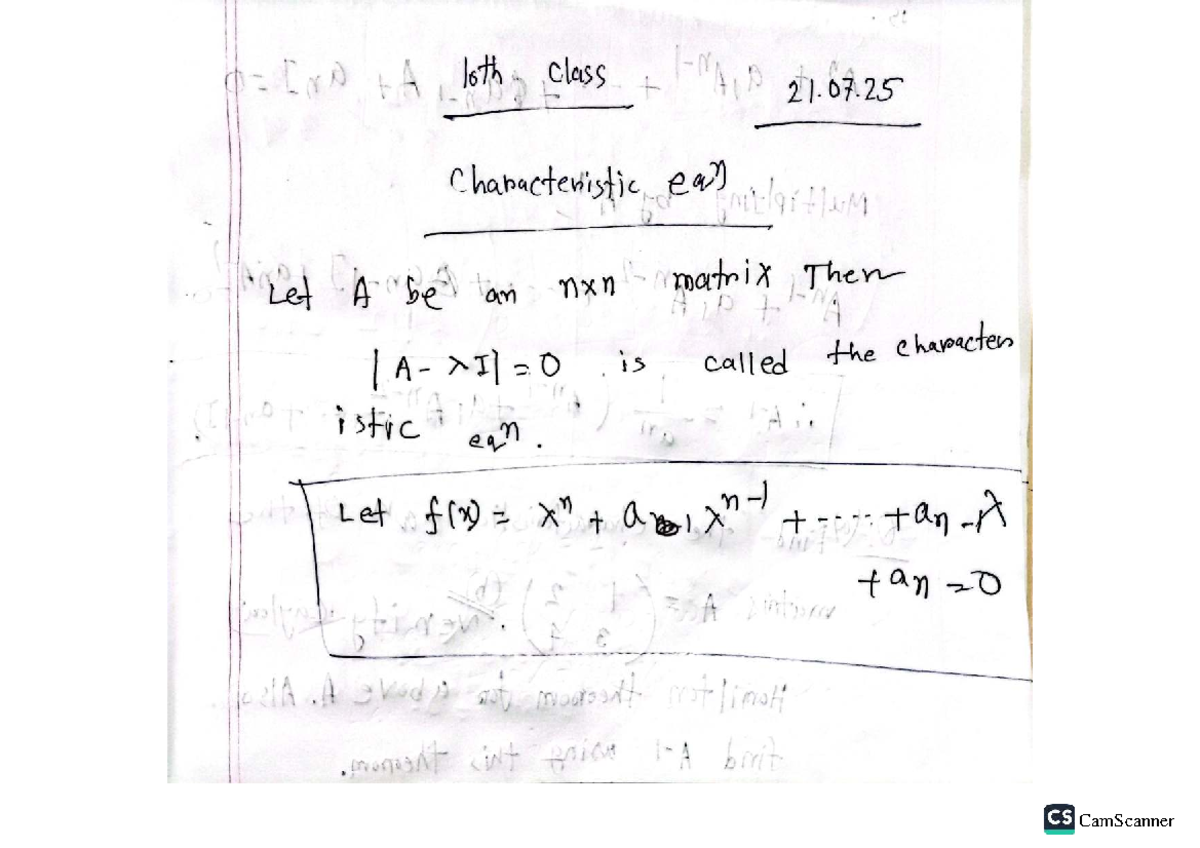 10th Class
21.07.25
Characteristic eqⁿ
Let A be an n×n matrix Then
|A - λI| = 0 is called the character
istic eqⁿ.
Let f(x) = λⁿ + a₁ λⁿ⁻¹ + ---- + aₙ₋₁λ
+ aₙ = 0
CS CamScanner